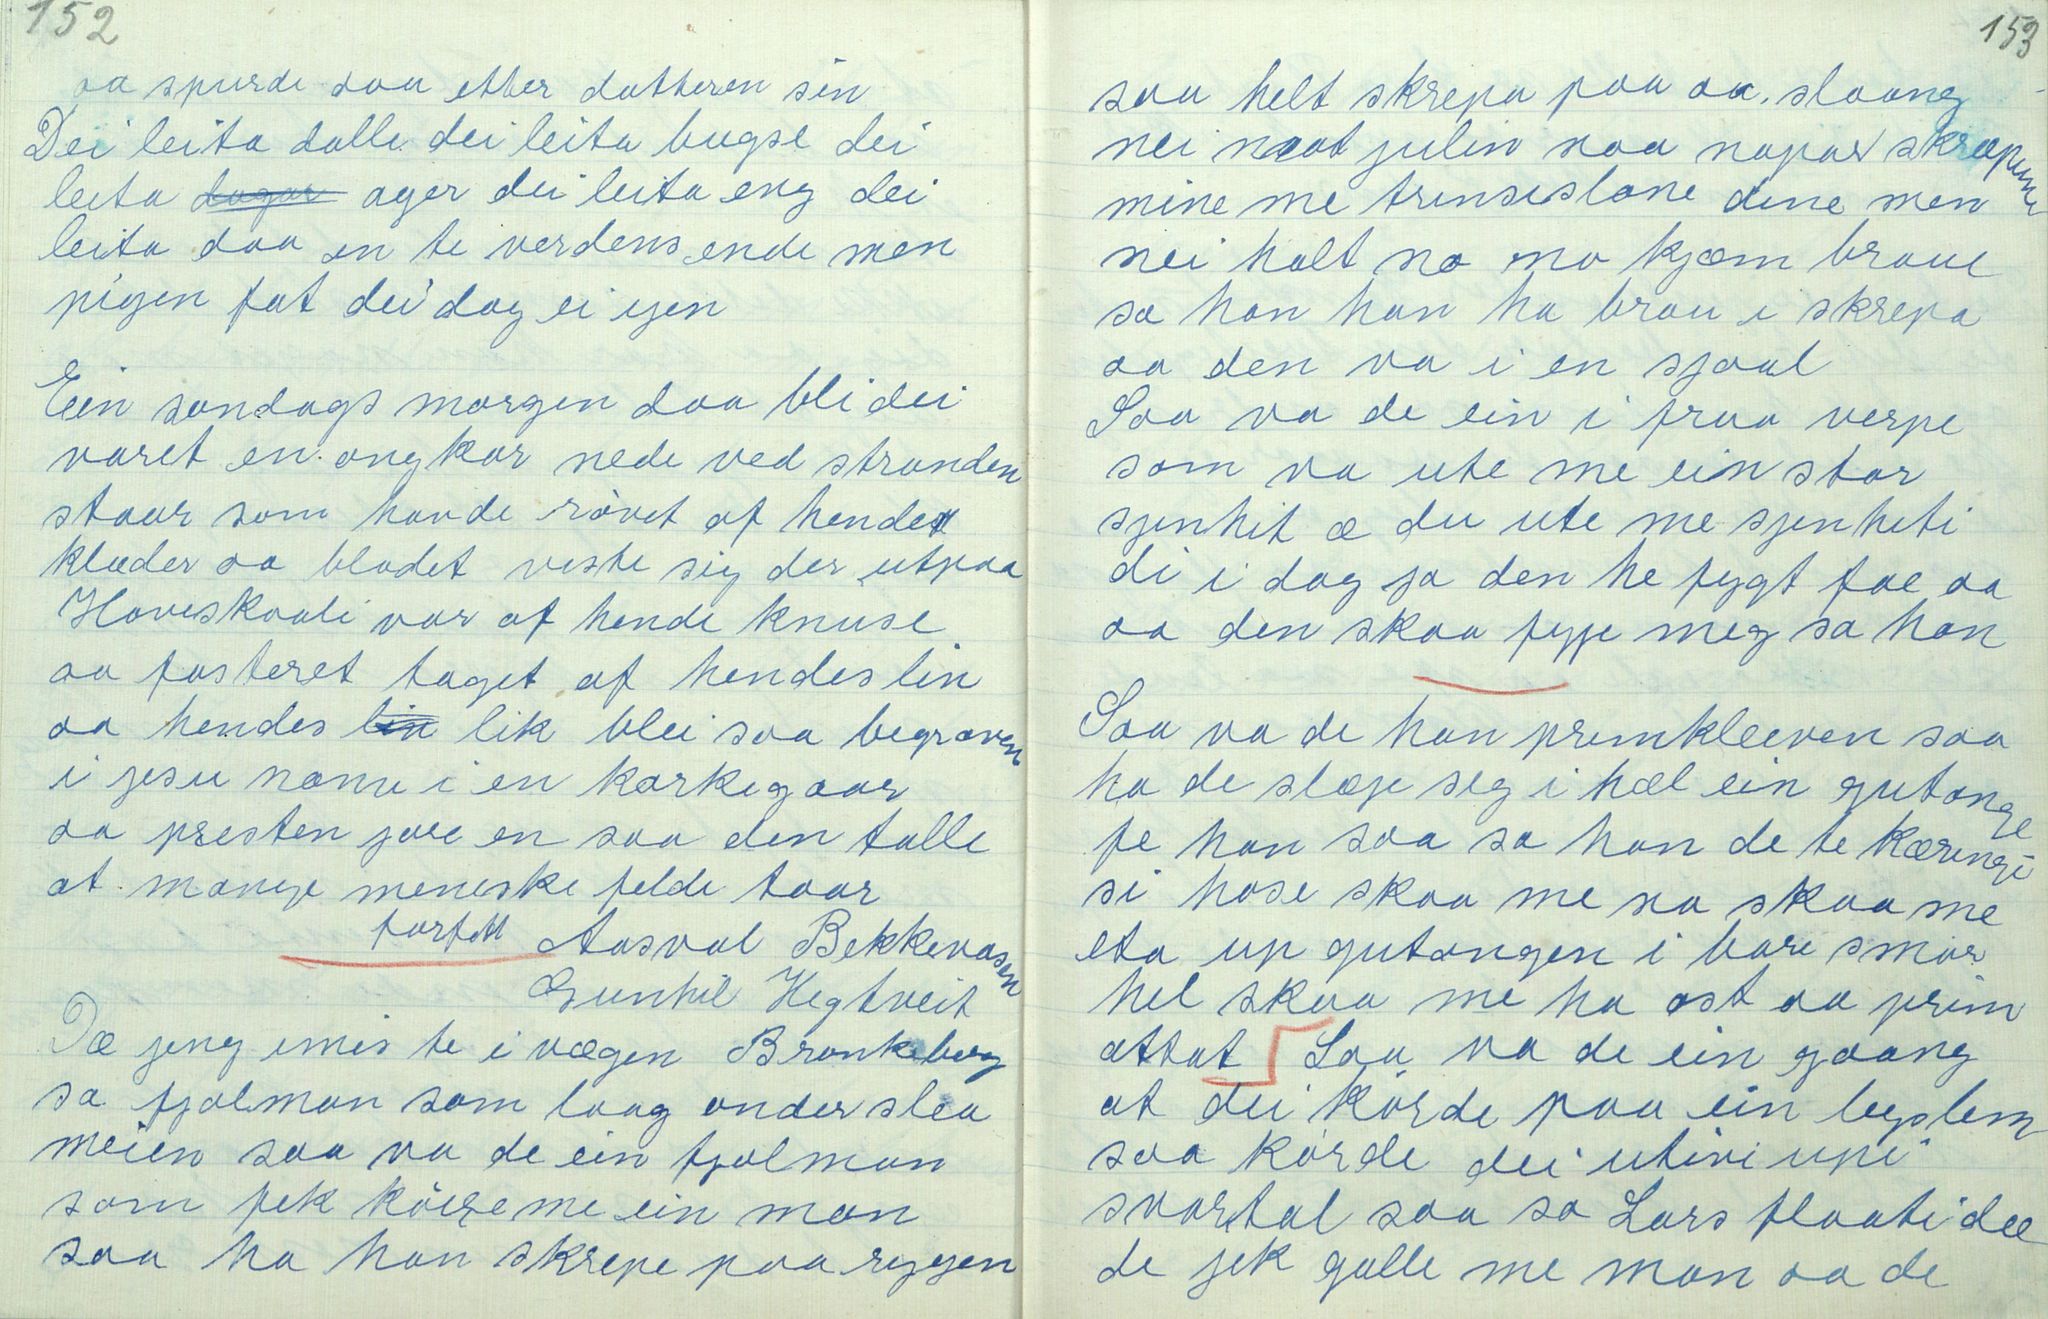 152
aa spurde daa etter datteren sin
Dei leita dalle dei leita bugse dei
leita ager dei leita eng dei
leita daa en te verdens ende men
pigen fat dei dag ei igen
Ein søndags morgen daa bli dei
varet en ongkar nede ved stranden
staar som havde røvet af hendes
klæder aa blodet viste sig der utpaa
Hoveskaali var af hende knuse
aa fosteret taget af hendes lin
aa hendes lik blei saa begraven
i jesu namn i en kørkegaar
aa presten jore en saa den talle
at mange meneske felde taar
Aasval Bekkevasen
Gunhil Hegtveit
Dæ jeng imis te i vægen Brunkeberg
sa fjølman som laag onder slea
meien saa va de ein fjølman
som fek køire me ein man
saa ha han skrepe paa ryggen
153
saa helt skrepa paa aa slaang
nei naat julin naa napar skræpune
mine me trinseslane dine men
nei halt no mo kjæm braue
sa han han ha brau i skrepa
aa den va i en sjaal
Saa va de ein i fraa verpe
som va ute me ein stor
sjenhit æ du ute me sjenheti
di i dag ja den he fygt fae aa
aa den skaa fyje meg sa han
Saa va de han primkleeven saa
ha de slæje seg i hæl ein gutonge
fe han saa sa han de te kæringi
si hose skaa me na skaa me
eta up gutongen i bare smør
hel skaa me ha ost aa prim
attat Saa va de ein gaang
at dei kørde paa ein leyslem
saa kørde dei utivi upi
svartal saa sa Lars flaati dæ
de jek galle me man aa de